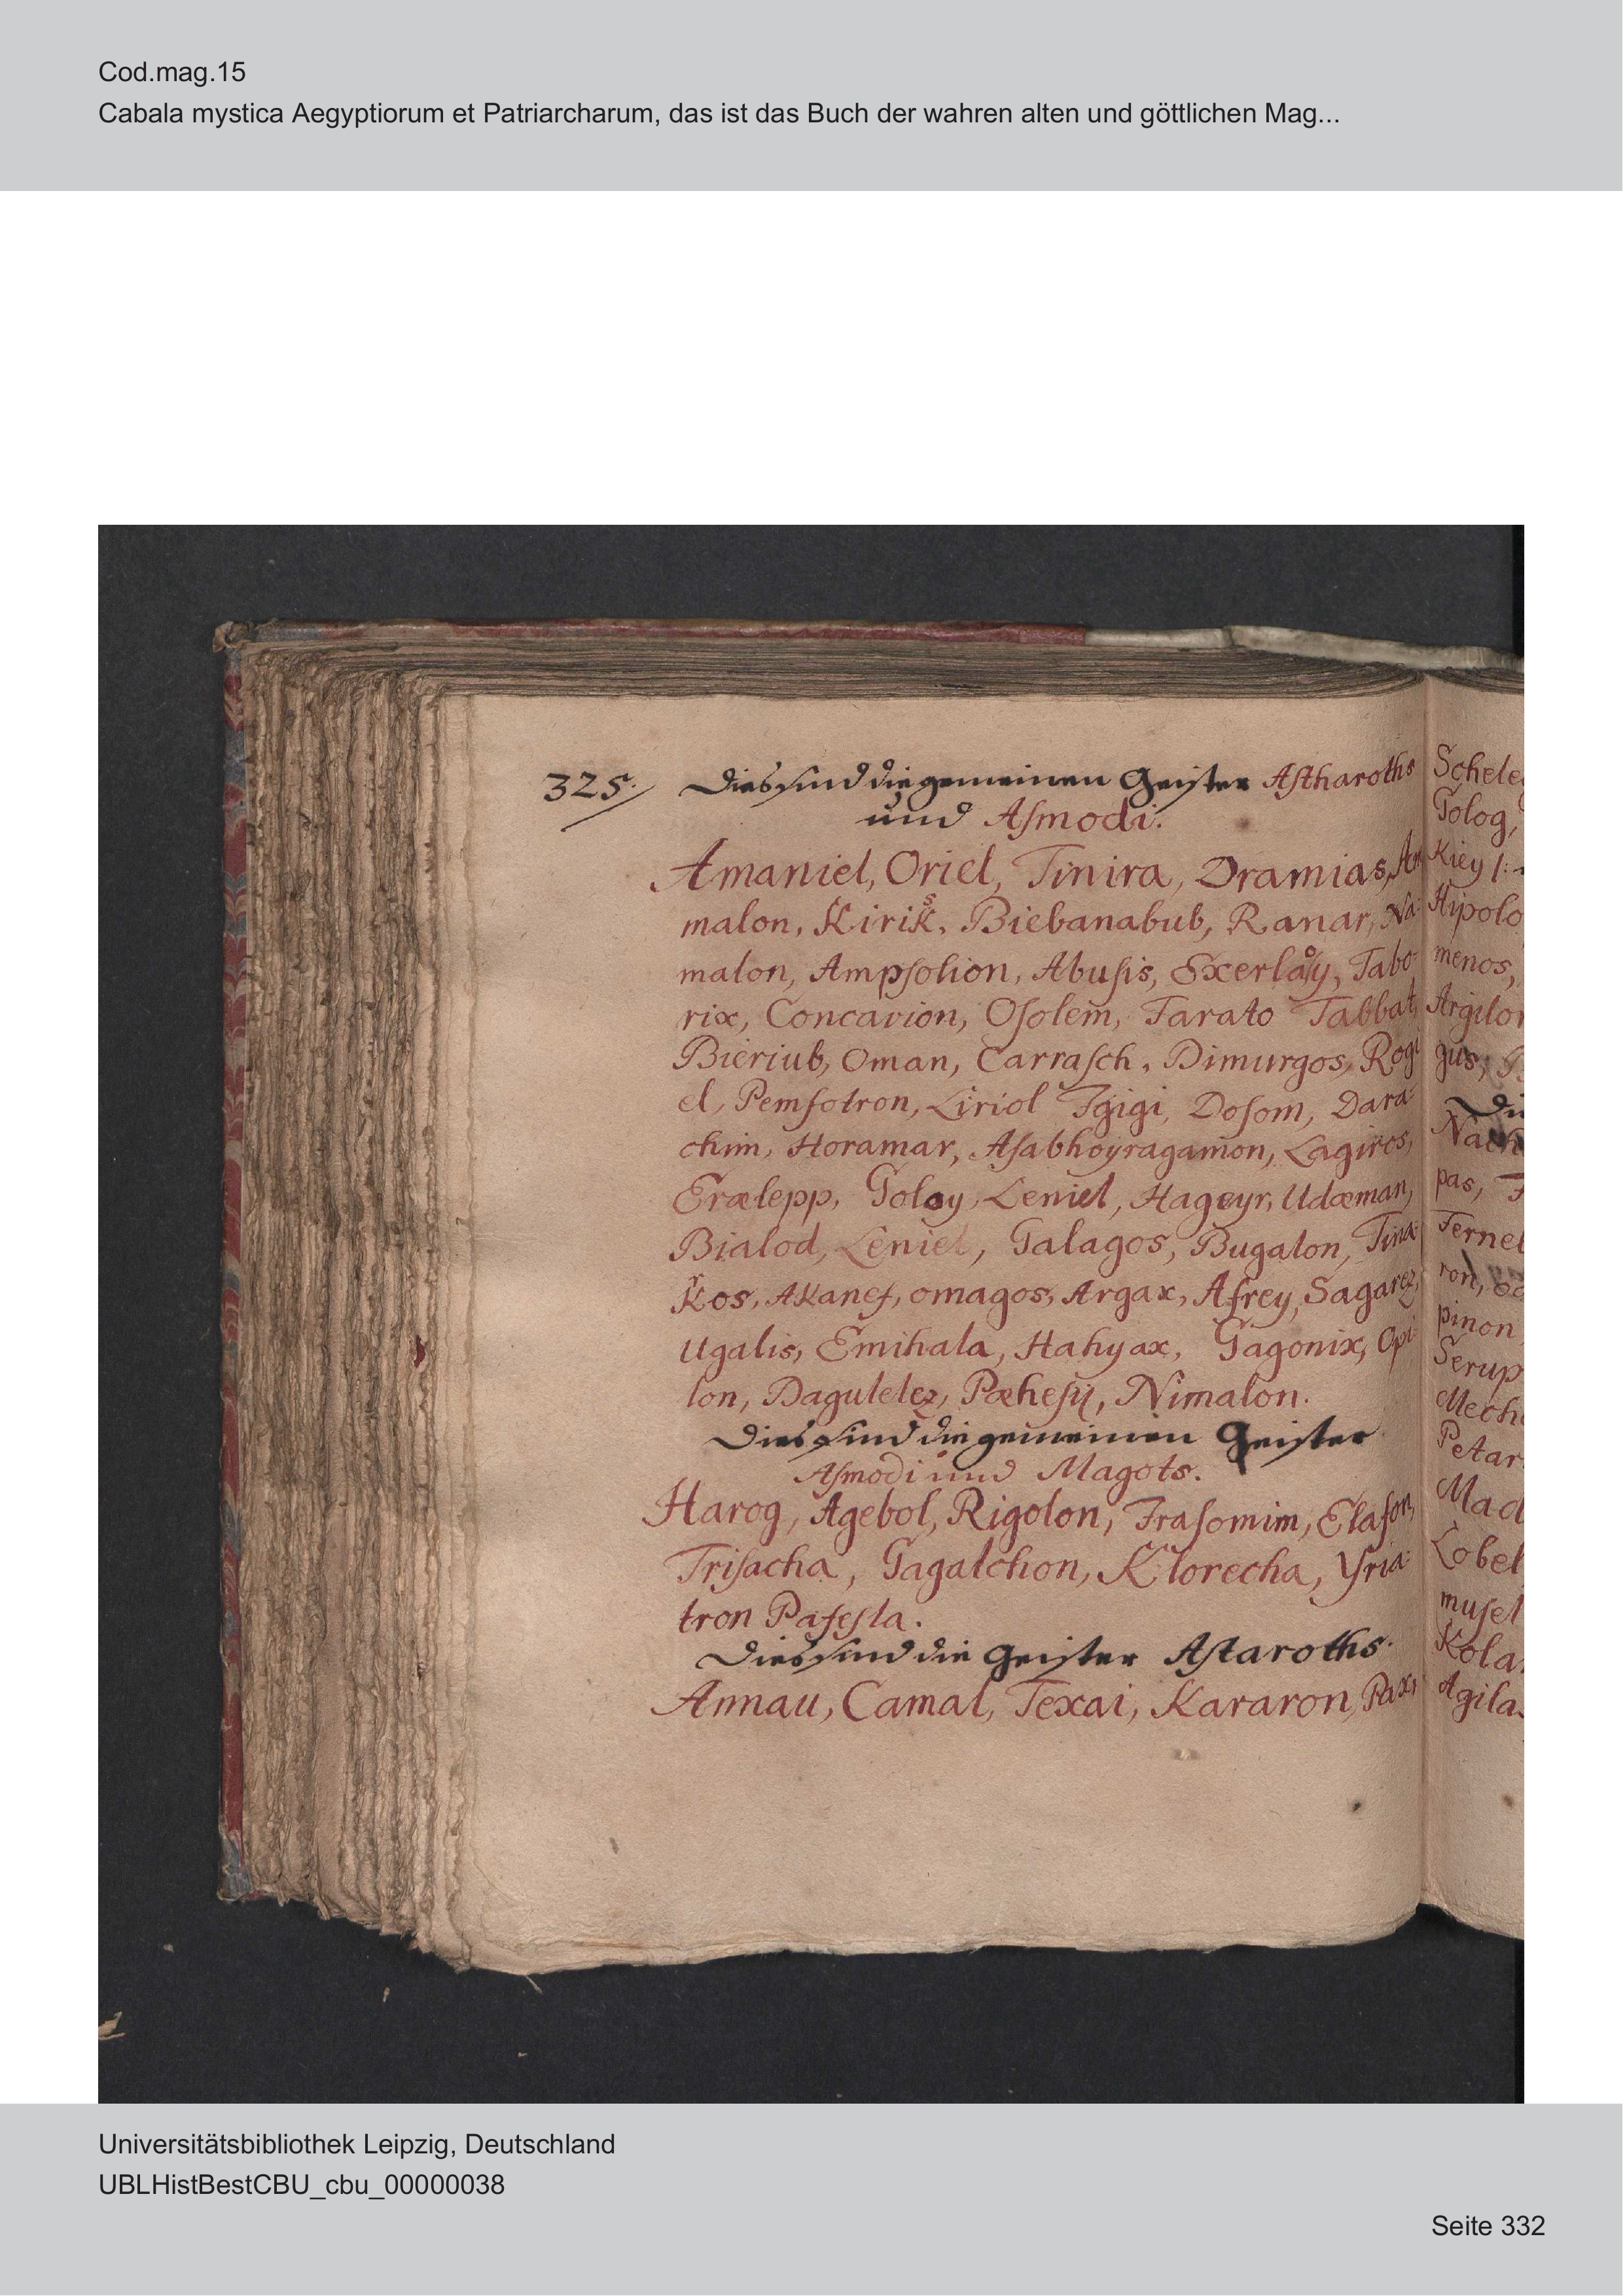 Cod.mag.15
Cabala mystica Aegyptiorum et Patriarcharum, das ist das Buch der wahren alten und göttlichen Mag...
325. Dies sind die gemeinen Geister Aſtharoths
und Aſmodi.
Amaniel, Oriel, Tinira, Dramias, Am
malon, Kirik, Biebanabub, Ranar, Na:
malon, Ampſolion, Abuſis, Exerlaoy, Tabo:
rix, Concavion, Oſolem, Tarato Tabbat,
Bieriub, Oman, Carraſch, Dimurgos, Rogi
el, Pemfotron, Liriol Igigi, Doſom, Dara:
chim, Horamar, Aſabhoyragamon, Lagiros,
Eralepp, Goloy, Leniel, Hageyr, Udæman,
Bialod, Leniel, Galagos, Bugalon, Tina:
Kos, AKanef, omagos, Argax, Afrey, Sagarez,
Ugalis, Emihala, Hahyax, Gagonix, Opi:
lon, Dagulelez, Pæheſij, Nimalon.
Dies sind die gemeinen Geister
Aſmodi und Magots.
Harog, Agebol, Rigolon, Fraſomim, Elafon,
Triſacha, Gagalchon, Klorecha, Yria:
tron Pafeſla.
Dies sind die Geister Aſtaroths.
Annau, Camal, Texai, Kararon, Paxi
Schele
Golog,
Kiey
Hipolo
menos,
Argilon
gus,
Die
pas,
Ternet
ron,
pinon
Serup
Mech
Petar
Mad
Lobel
muſel
Kola
Agila
Universitätsbibliothek Leipzig, Deutschland
UBLHistBestCBU_cbu_00000038
Seite 332